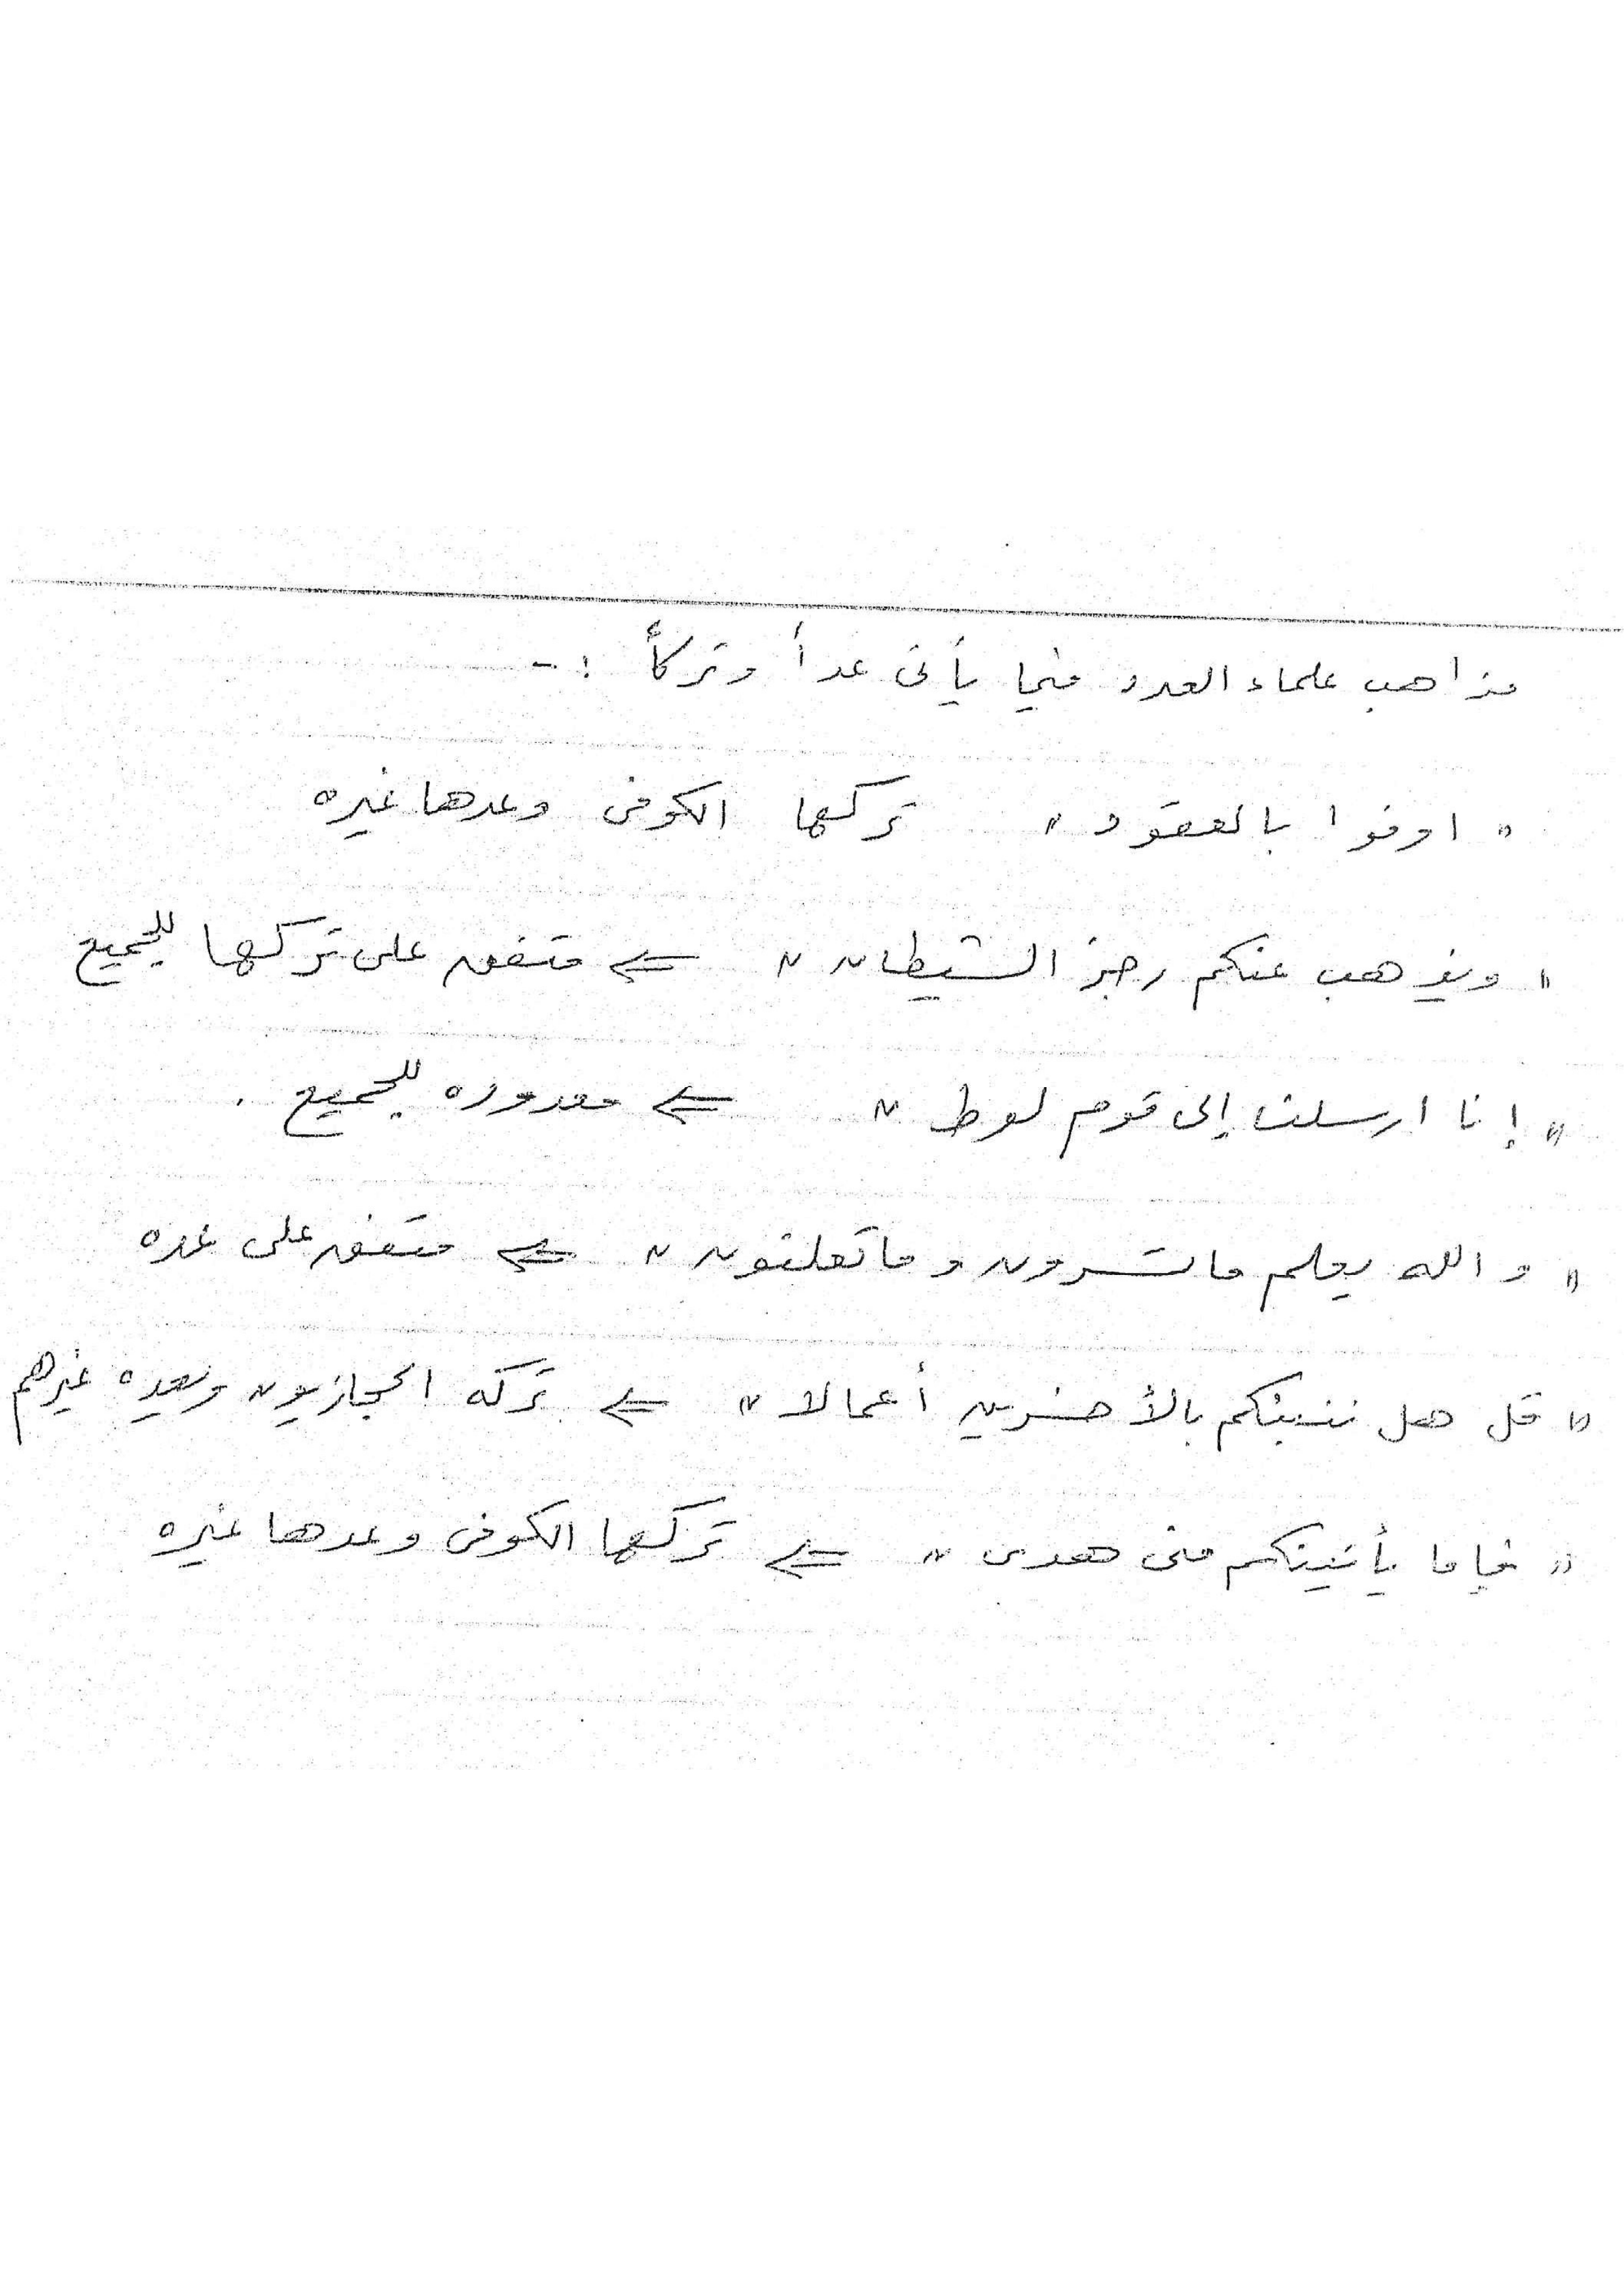 مذاهب علماء العدد فيما يأتى عداً وتركاً :-
" اوفوا بالعقود " تركها الكوفى وعدها غيره
" ويذهب عنكم رجز الشيطان " ⇐ متفق على تركها للجميع
" إنا ارسلنا إلى قوم لوط " ⇐ معدوده للجميع .
" والله يعلم ما تسرون وما تعلنون " ⇐ متفق على عده
" قل هل ننبئكم بالأخسرين أعمالا " ⇐ تركه الحجازيون ويعده غيرهم
" فإما يأتينكم منى هدى " ⇐ تركها الكوفى وعدها غيره